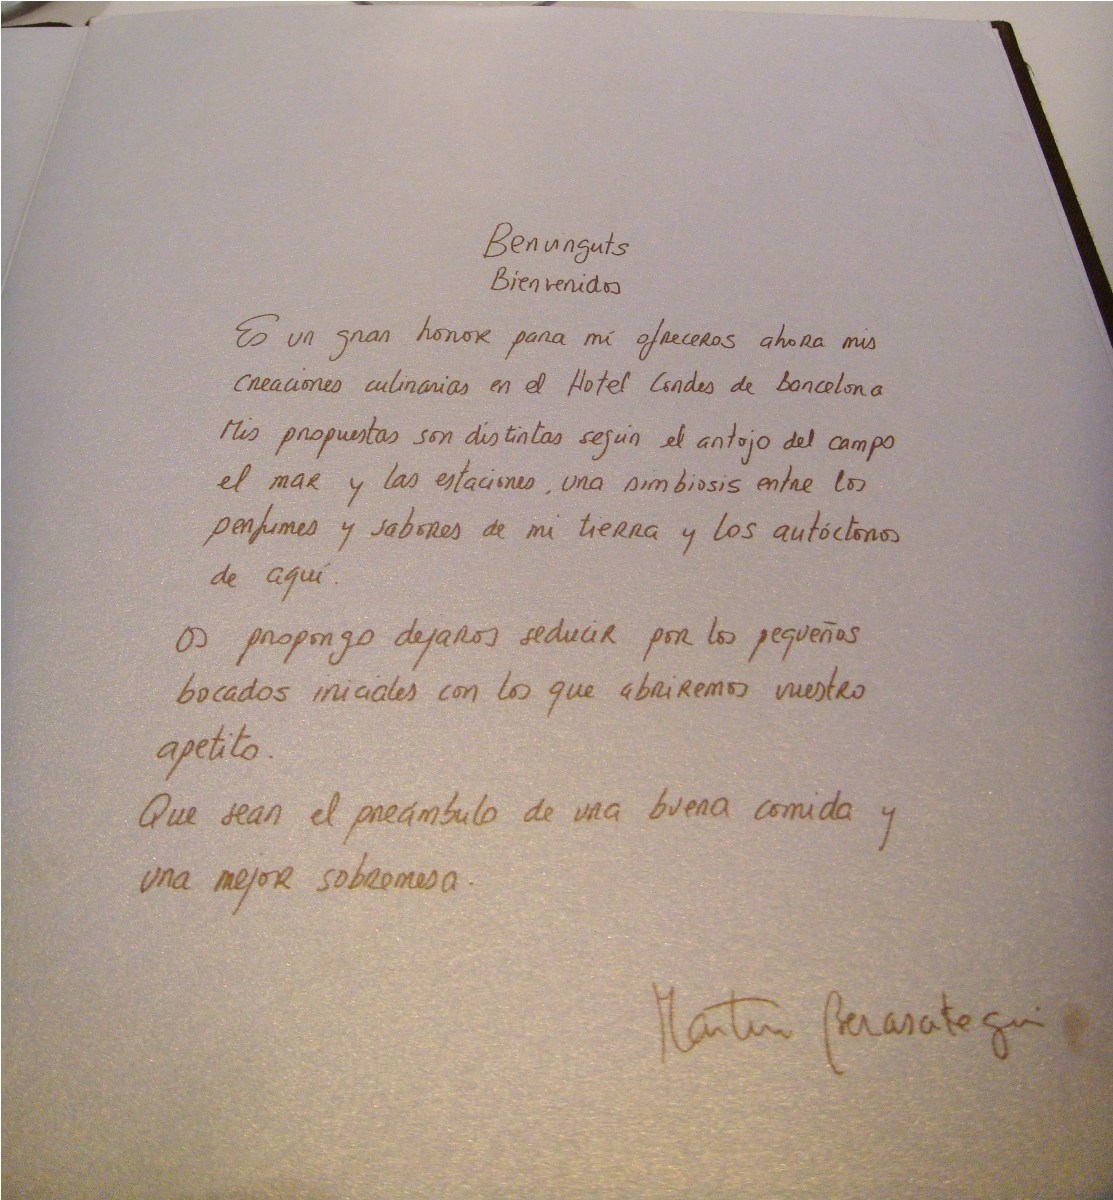 Benvinguts
Bienvenidos
Es un gran honor para mí ofreceros ahora mis
creaciones culinarias en el Hotel Condes de Barcelona
Mis propuestas son distintas según el antojo del campo
el mar y las estaciones, una simbiosis entre los
perfumes y sabores de mi tierra y los autóctonos
de aquí.
Os propongo dejaros seducir por los pequeños
bocados iniciales con los que abriremos vuestro
apetito.
Que sean el preámbulo de una buena comida y
una mejor sobremesa.
Martin Berasategui